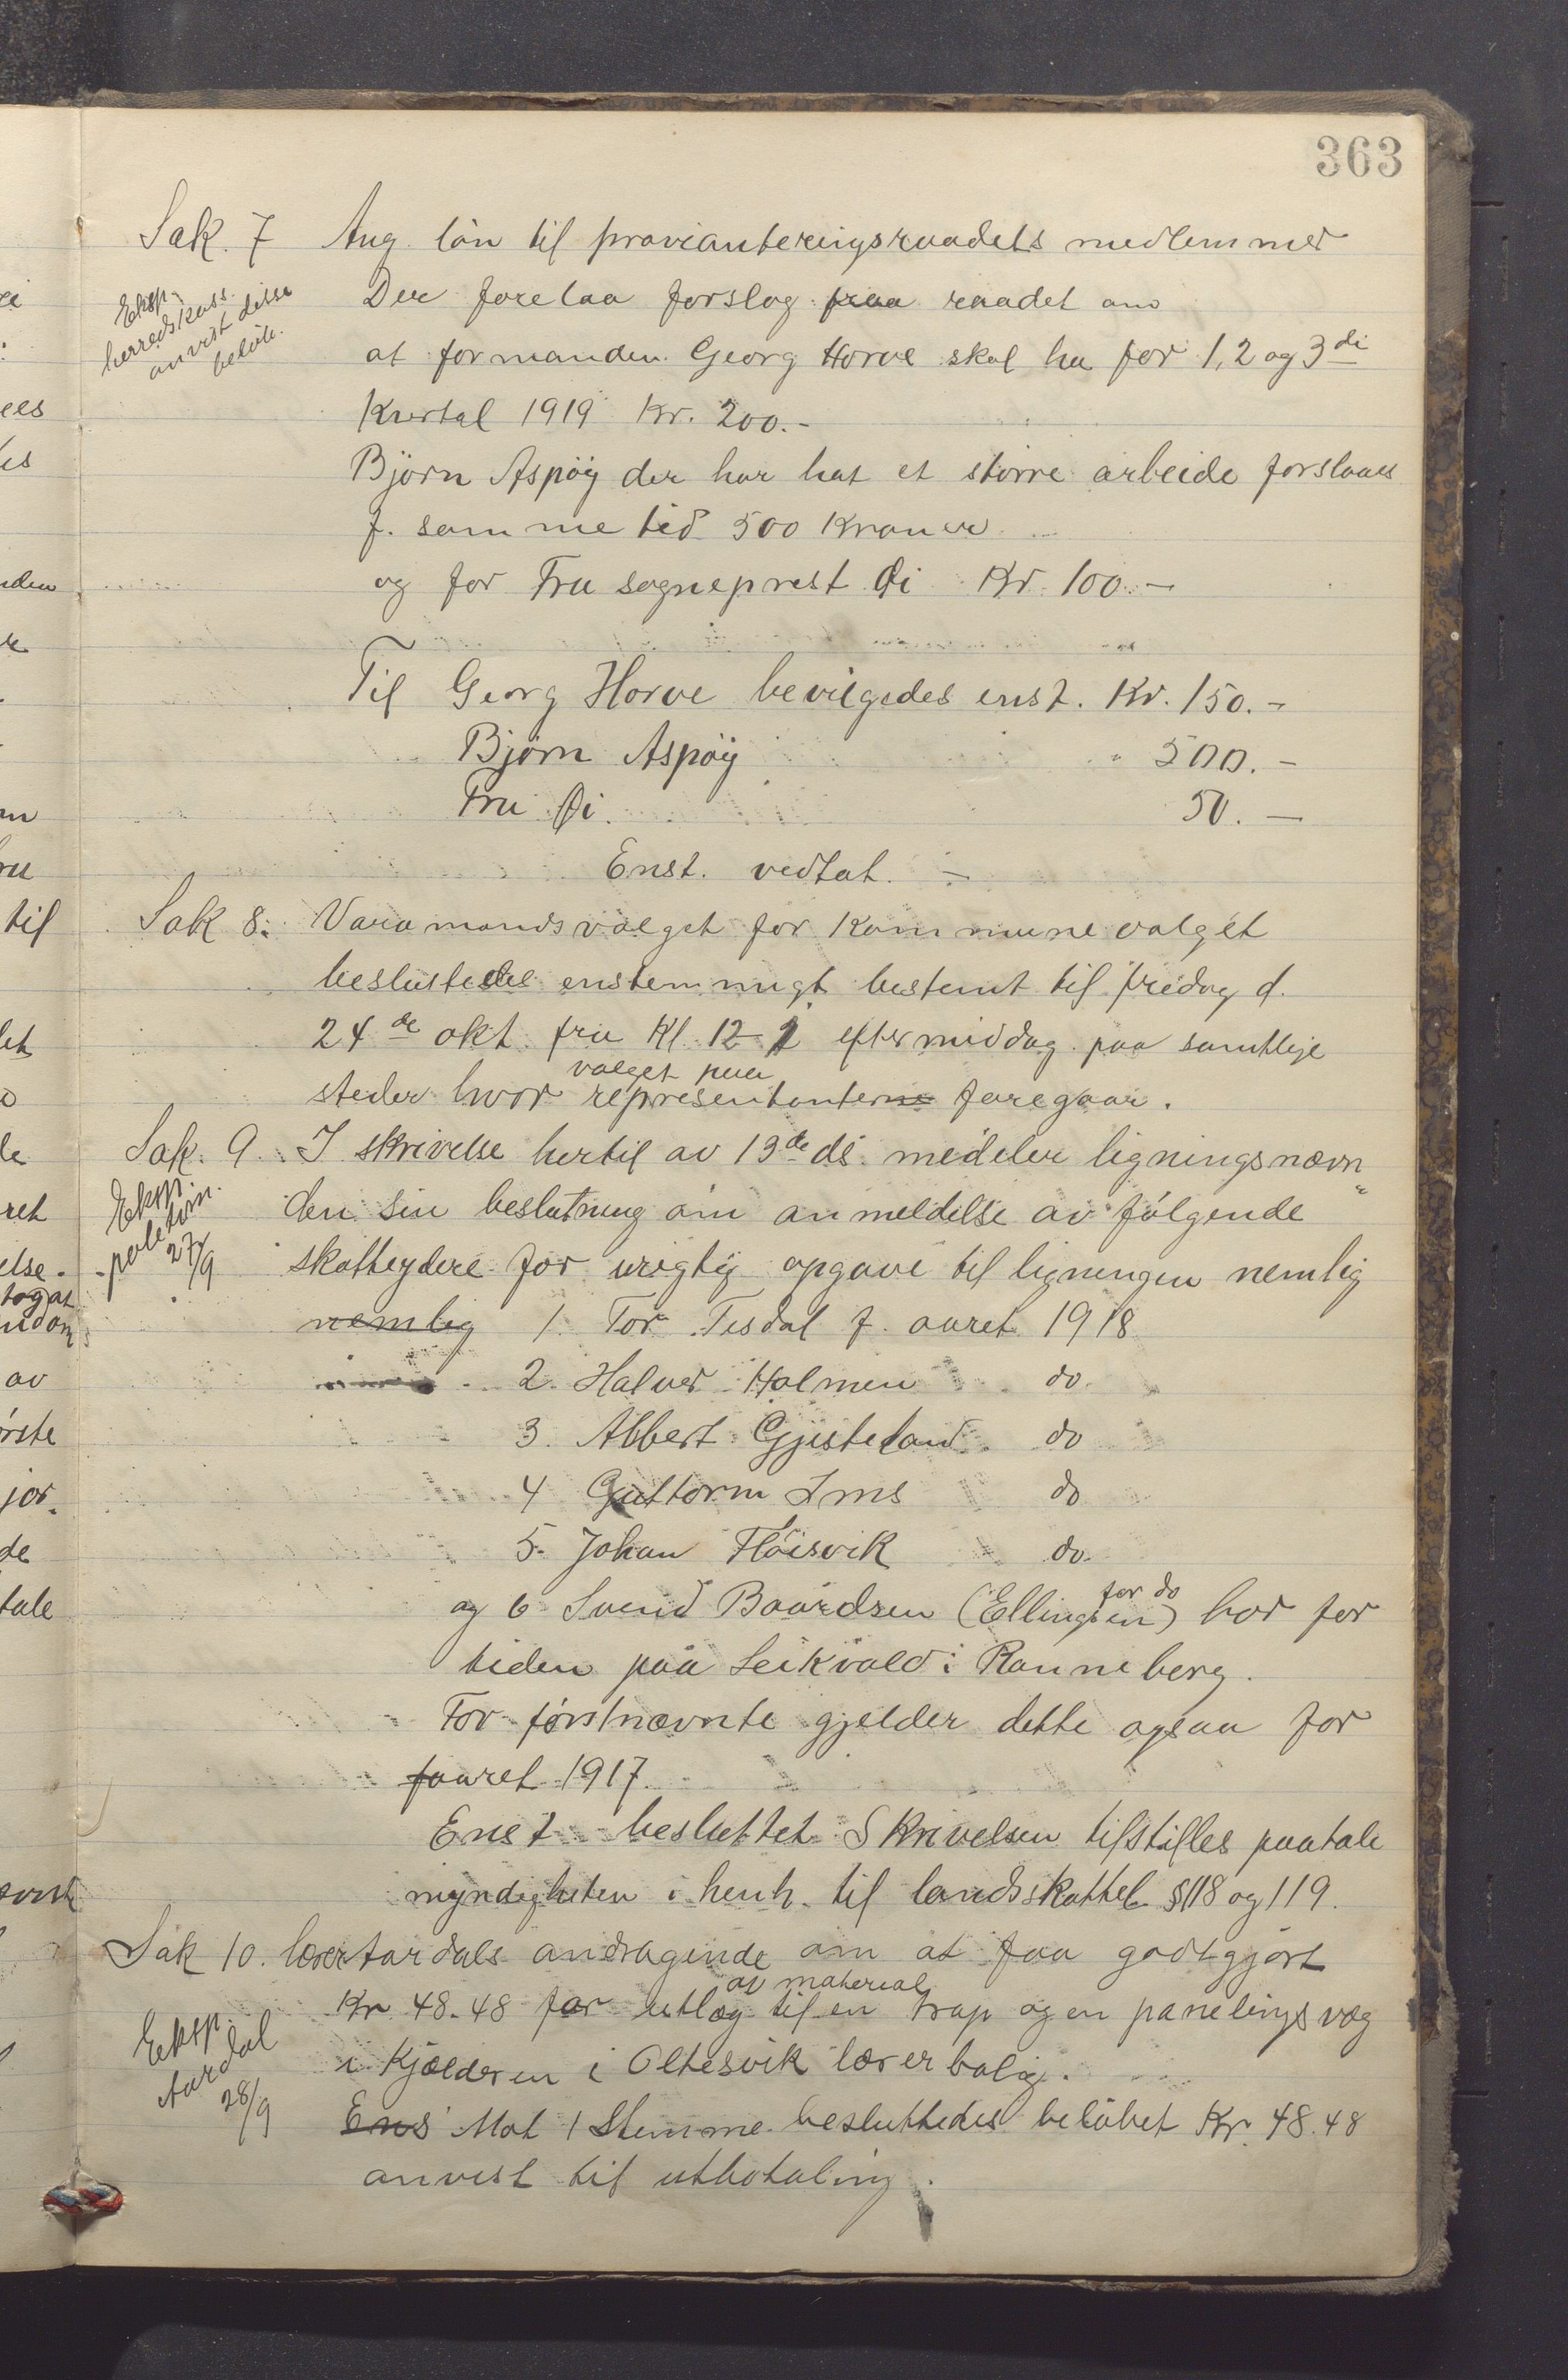 363
Sak. 7 Ang. lön til provianteringsraadets medlemmer
Eksp.
herredskass.
anvist disse
beløb.
Der forelaa forslag fraa raadet om
at formanden Georg Horve skal ha for 1, 2 og 3di
Kvartal 1919 Kr. 200.-
Björn Aspöy der har hat et större arbeide forslaaes
f. samme tid 500 Kroner
og for Fru sogneprest Øi Kr. 100.-
Til Georg Horve bevilgedes enst. Kr. 150.-
Björn Aspöy " 500.-
Fru Øi. 50.-
Enst. vedtat. -
Sak 8: Varamandsvalget for Kommunevalget
besluttedes enstemmigt bestemt til fredag d.
24de okt. fra Kl. 12-2 eftermiddag paa samtlige
valget paa
steder hvor representanterne foregaar.
Sak. 9. I skrivelse hertil av 13de ds. meddeler ligningsnævn"
Eksp.
27/9
den sin beslutning om anmeldelse av følgende
skatteydere for urigtig opgave til ligningen nemlig
nemlig 1. Tor Tisdal f. aaret 1918
2. Halver Holmen do.
3. Albert Gjesteland do
4 Guttorm Ims do
5. Johan Flöisvik do.
for do
og 6 Svend Baardsen (Ellingsen) bor for
tiden paa Leikvold i Ranneberg.
For förstnævnte gjelder dette ogsaa for
faaret 1917.
Enst. besluttet Skrivelsen tilstilles paatale
myndigheten i henh. til landsskattel. §118 og 119.
Sak 10. lærer Aardals andragende om at faa godtgjört
av material
Kr 48.48 for utlæg til en trap og en panelingsvæg
Eksp.
Aardal
28/9
i Kjælderen i Oltesvik lærerbolig.
Ens Mot 1 Stemme besluttedes belöbet Kr. 48.48
anvist til utbetaling.